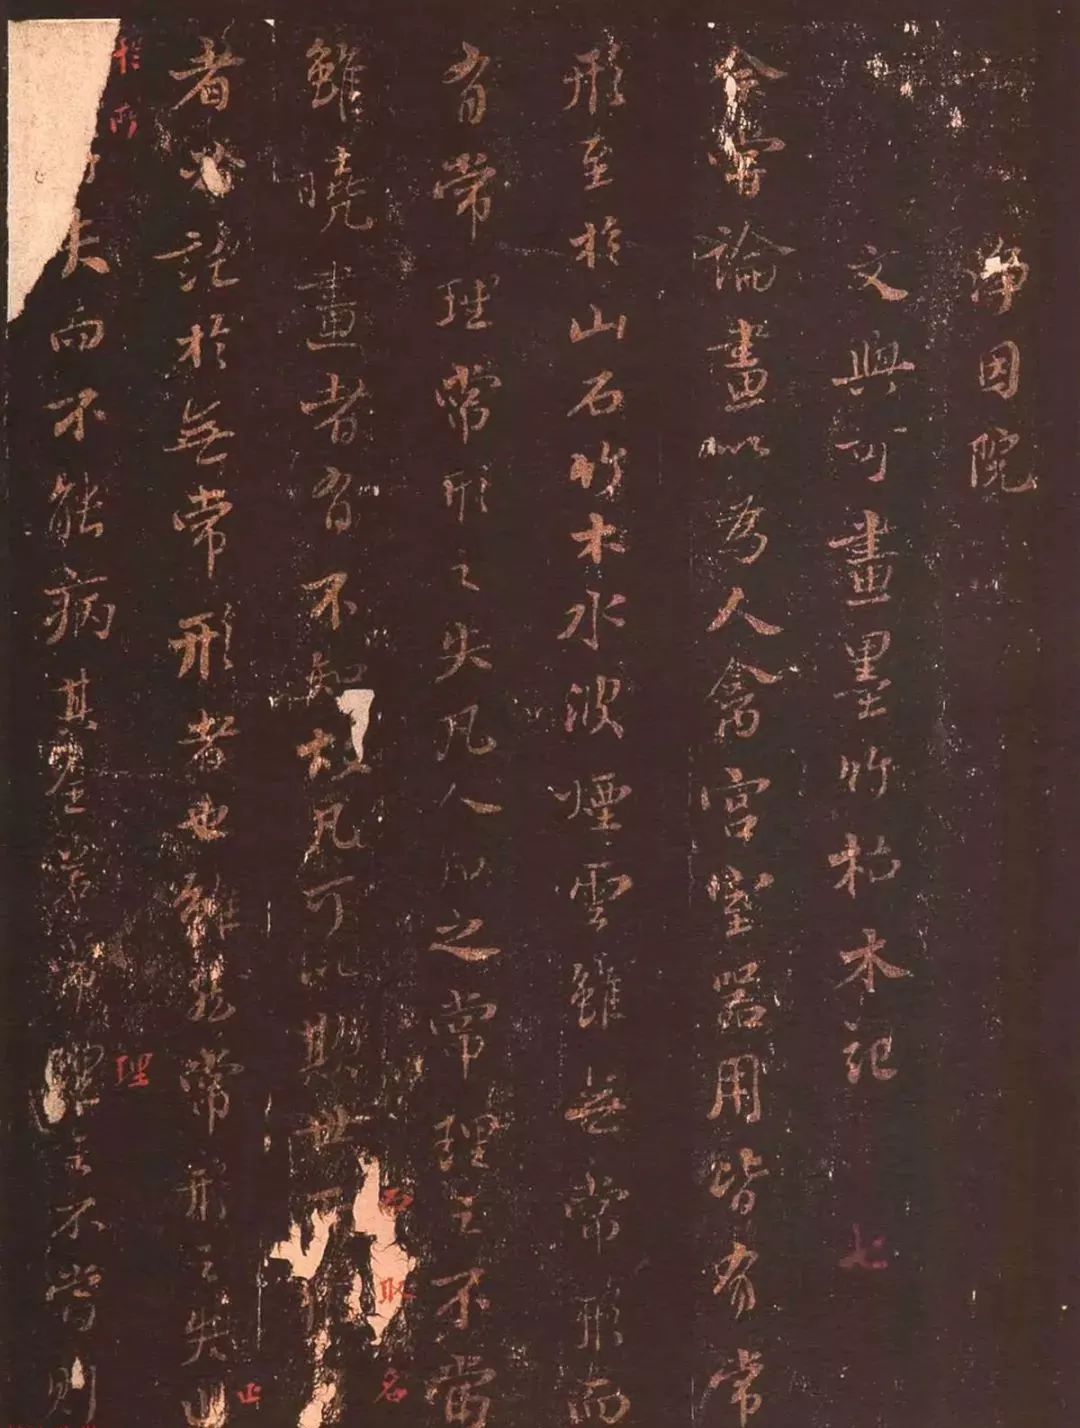 淨因院
文與可畫墨竹枯木記
七
余嘗論畫以為人禽宮室器用皆有常
形至於山石竹木水波煙雲雖無常形而
有常理常形之失凡人知之常理之不當
而取名
雖曉畫者有不知故凡可以欺世而
止
者必託於無常形者也雖然常形之失止
於所
理
失而不能病其全若常理之不當則